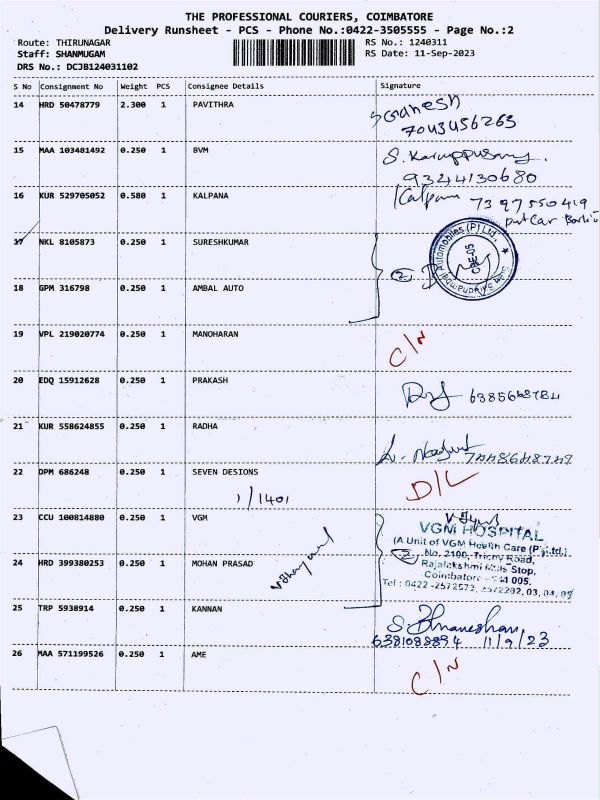 THE PROFESSIONAL COURIERS, COIMBATORE
Delivery Runsheet - PCS - Phone No.:0422-3505555 - Page No.:2
Route: THIRUNAGAR RS No.: 1240311
Staff: SHANMUGAM RS Date: 11-Sep-2023
DRS No.: DCJB124031102
S No Consignment No Weight PCS Consignee Details Signature
14 HRD 50478779 2.300 1 PAVITHRA Ganesh
7043456263
15 MAA 103481492 0.250 1 BVM S. Karuppusamy.
9324130680
16 KUR 529705052 0.580 1 KALPANA Kalpana 7397550419
17 NKL 8105873 0.250 1 SURESHKUMAR
18 GPM 316798 0.250 1 AMBAL AUTO
Automobiles (P) Ltd.,
CBE-05
19 VPL 219020774 0.250 1 MANOHARAN C/N
20 EDQ 15912628 0.250 1 PRAKASH
21 KUR 558624855 0.250 1 RADHA
22 DPM 686248 0.250 1 SEVEN DESIONS D/L
1/1401
23 CCU 100814880 0.250 1 VGM
VGM HOSPITAL
(A Unit of VGM Health Care (P) Ltd.)
No. 2100, Trichy Road,
24 HRD 399380253 0.250 1 MOHAN PRASAD
Rajalakshmi Mills Stop,
Coimbatore 005.
Tel : 0422 -2572573,
25 TRP 5938914 0.250 1 KANNAN S. Bhuvaneshan,
6381088894 11/9/23
26 MAA 571199526 0.250 1 AME C/N